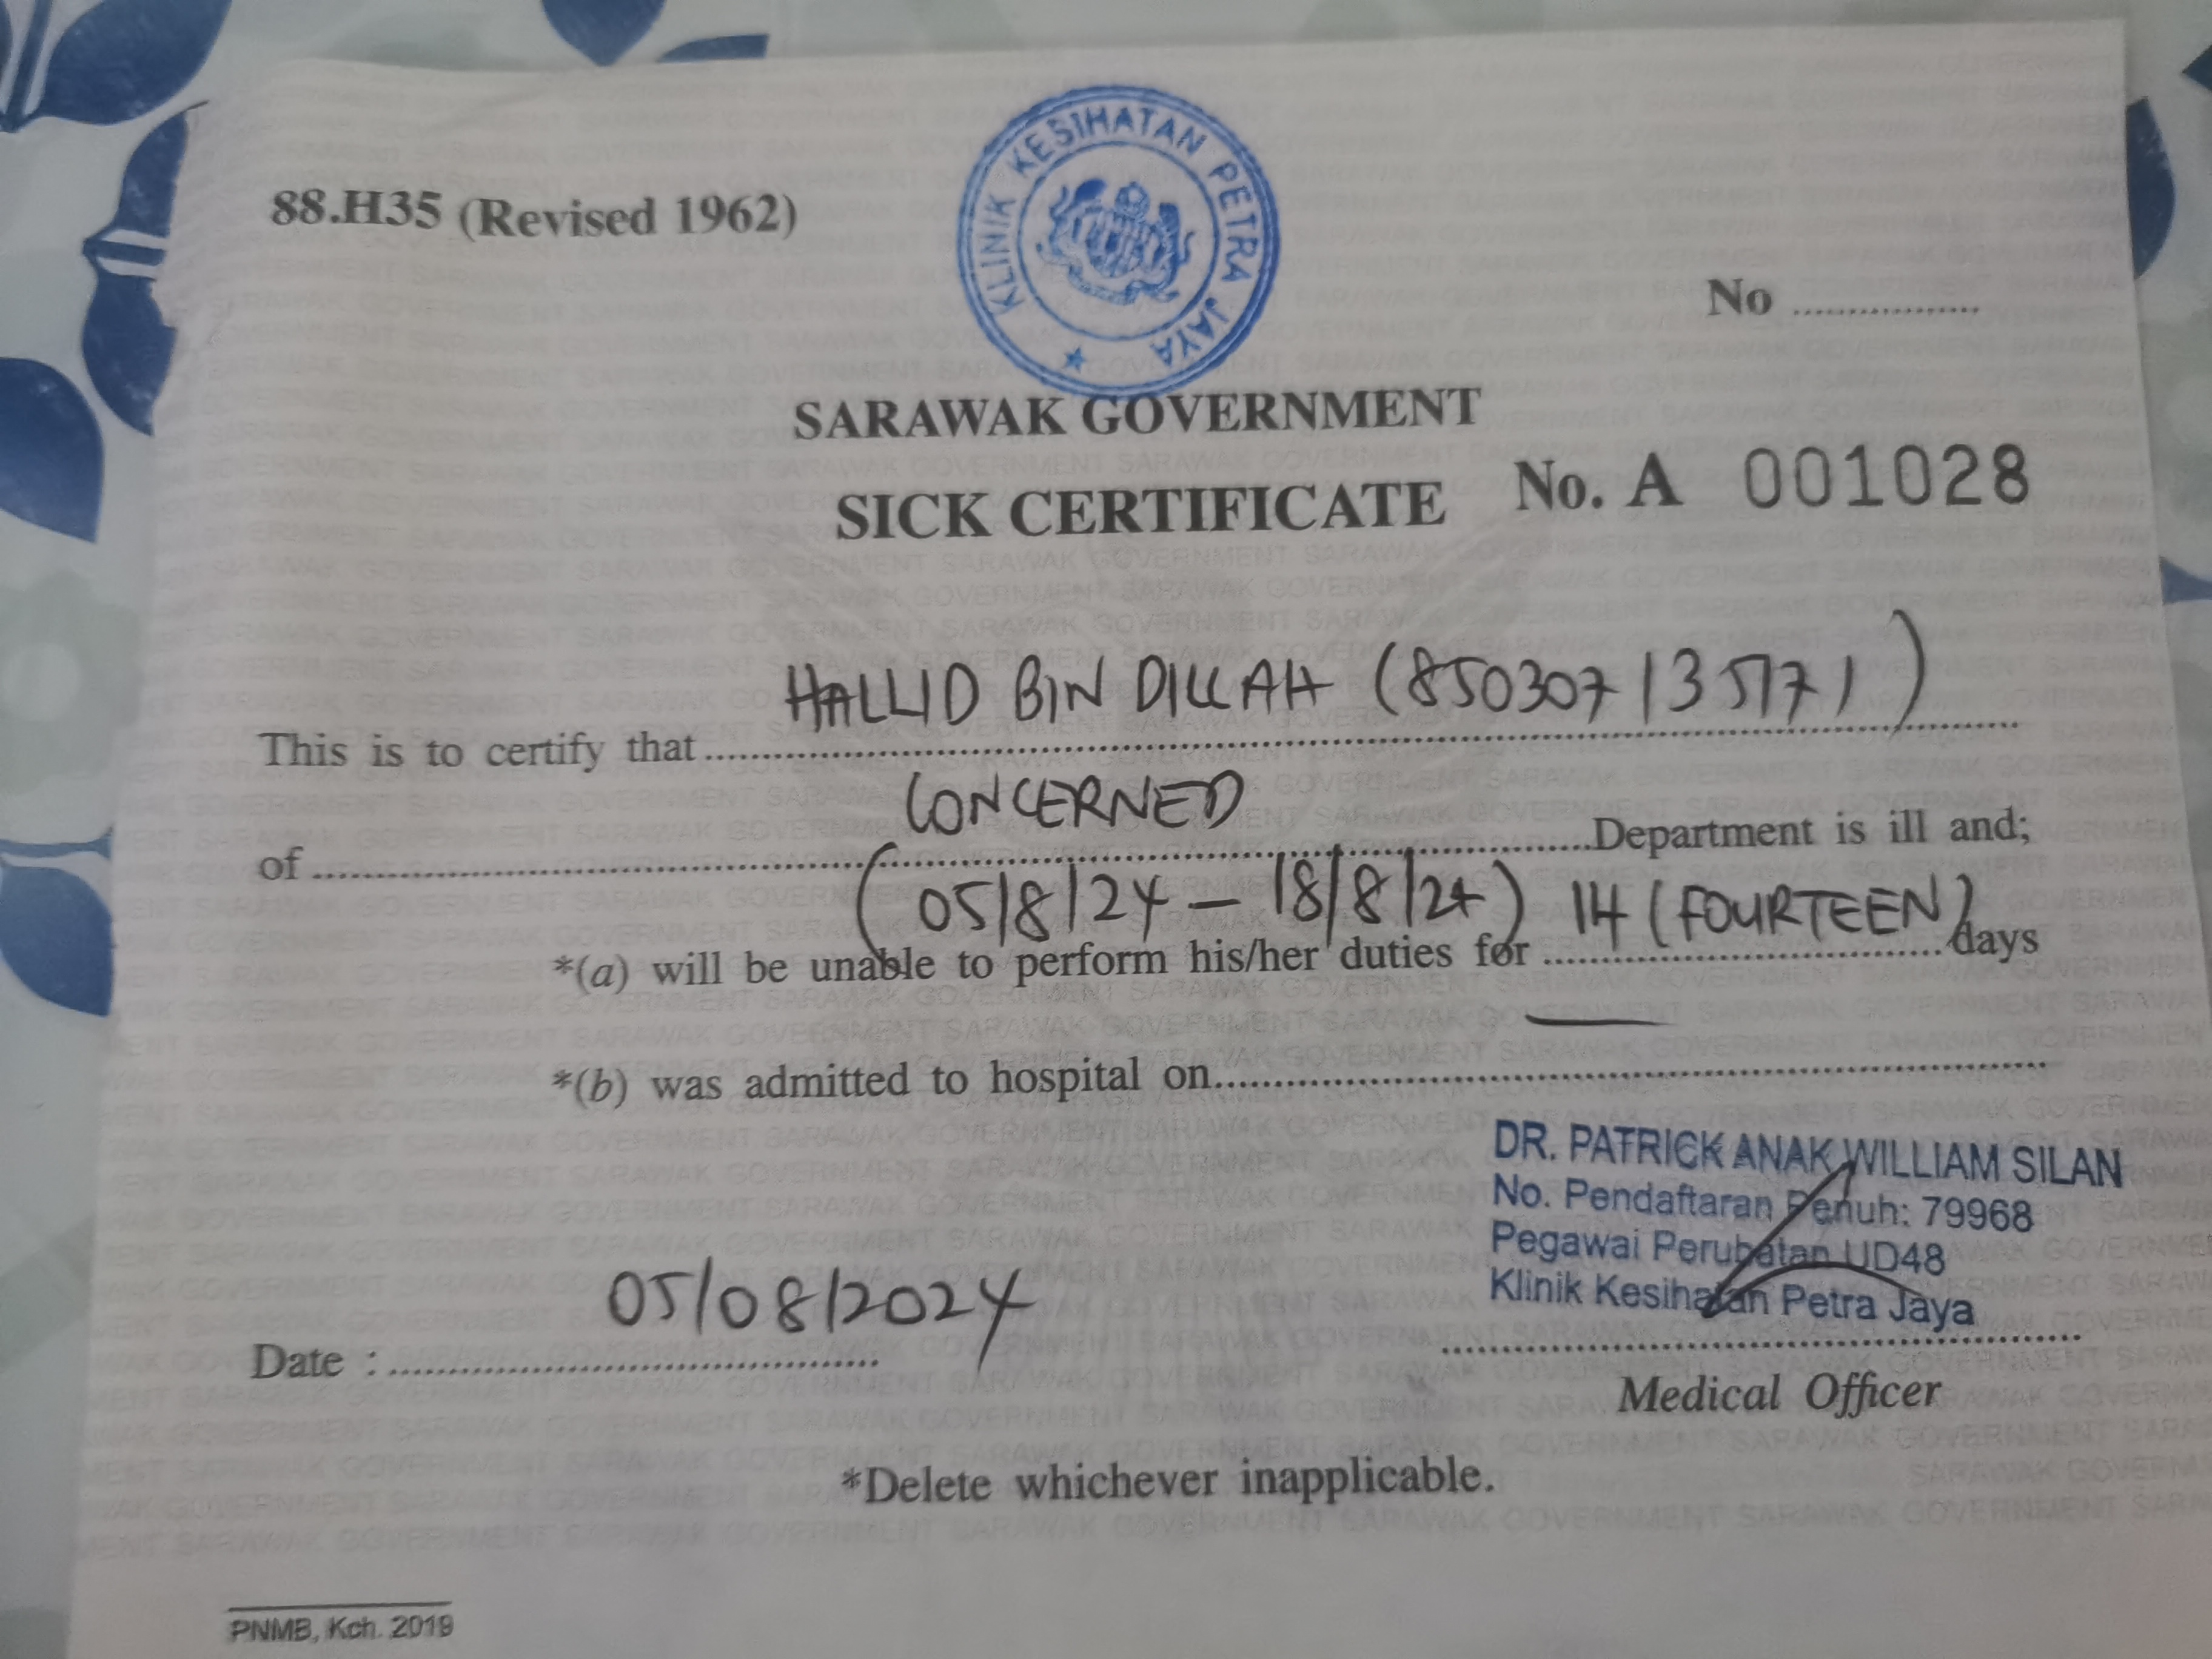 KLINIK KESIHATAN PETRA JAYA
88.H35 (Revised 1962)
No ....................
SARAWAK GOVERNMENT
SICK CERTIFICATE No. A 001028
This is to certify that HALLID BIN DILLAH (850307135171)
of CONCERNED Department is ill and;
(05/8/24 – 18/8/24) 14 (FOURTEEN)
*(a) will be unable to perform his/her duties for .................... days
*(b) was admitted to hospital on —
DR. PATRICK ANAK WILLIAM SILAN
No. Pendaftaran Penuh: 79968
Pegawai Perubatan UD48
Klinik Kesihatan Petra Jaya
Date : 05/08/2024
Medical Officer
*Delete whichever inapplicable.
PNMB, Kch. 2019